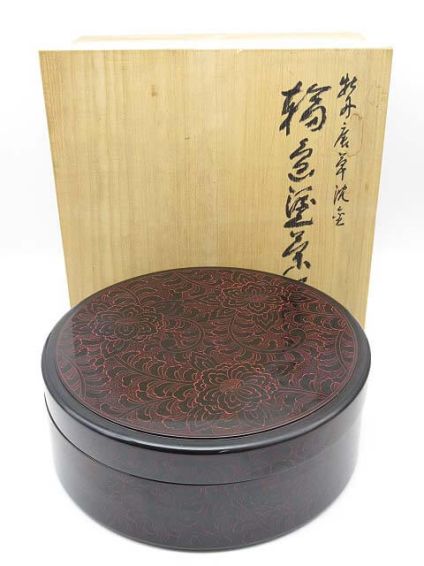 牡丹唐草沈金
輪島塗菓